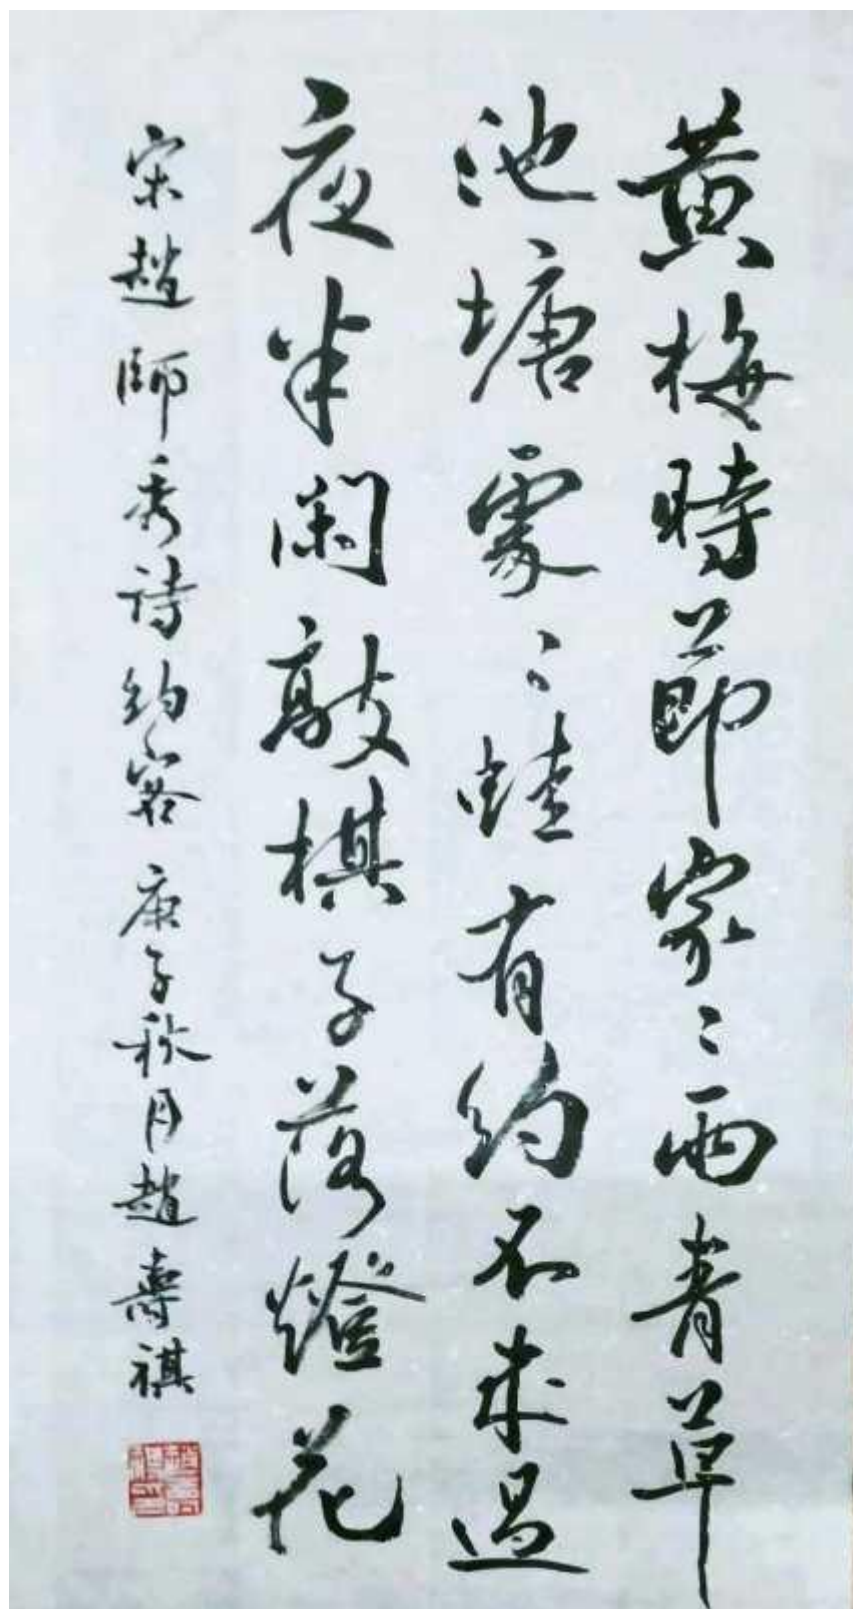 黄梅時節家〻雨青草
池塘處〻蛙有約不來過
夜半閑敲棋子落燈花
宋趙師秀詩約客 庚子秋月趙壽祺